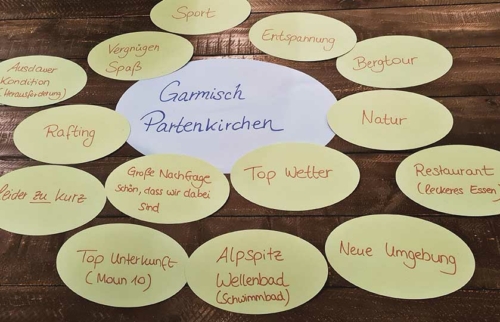 Sport
Entspannung
Vergnügen
Spaß
Bergtour
Ausdauer
Kondition
(Herausforderung)
Garmisch
Partenkirchen
Natur
Rafting
Große Nachfage
schön, dass wir dabei
sind
Top Wetter
Restaurant
(leckeres Essen
leider zu kurz
Top Unterkunft
(Moun 10)
Alpspitz
Wellenbad
(Schwimmbad)
Neue Umgebung